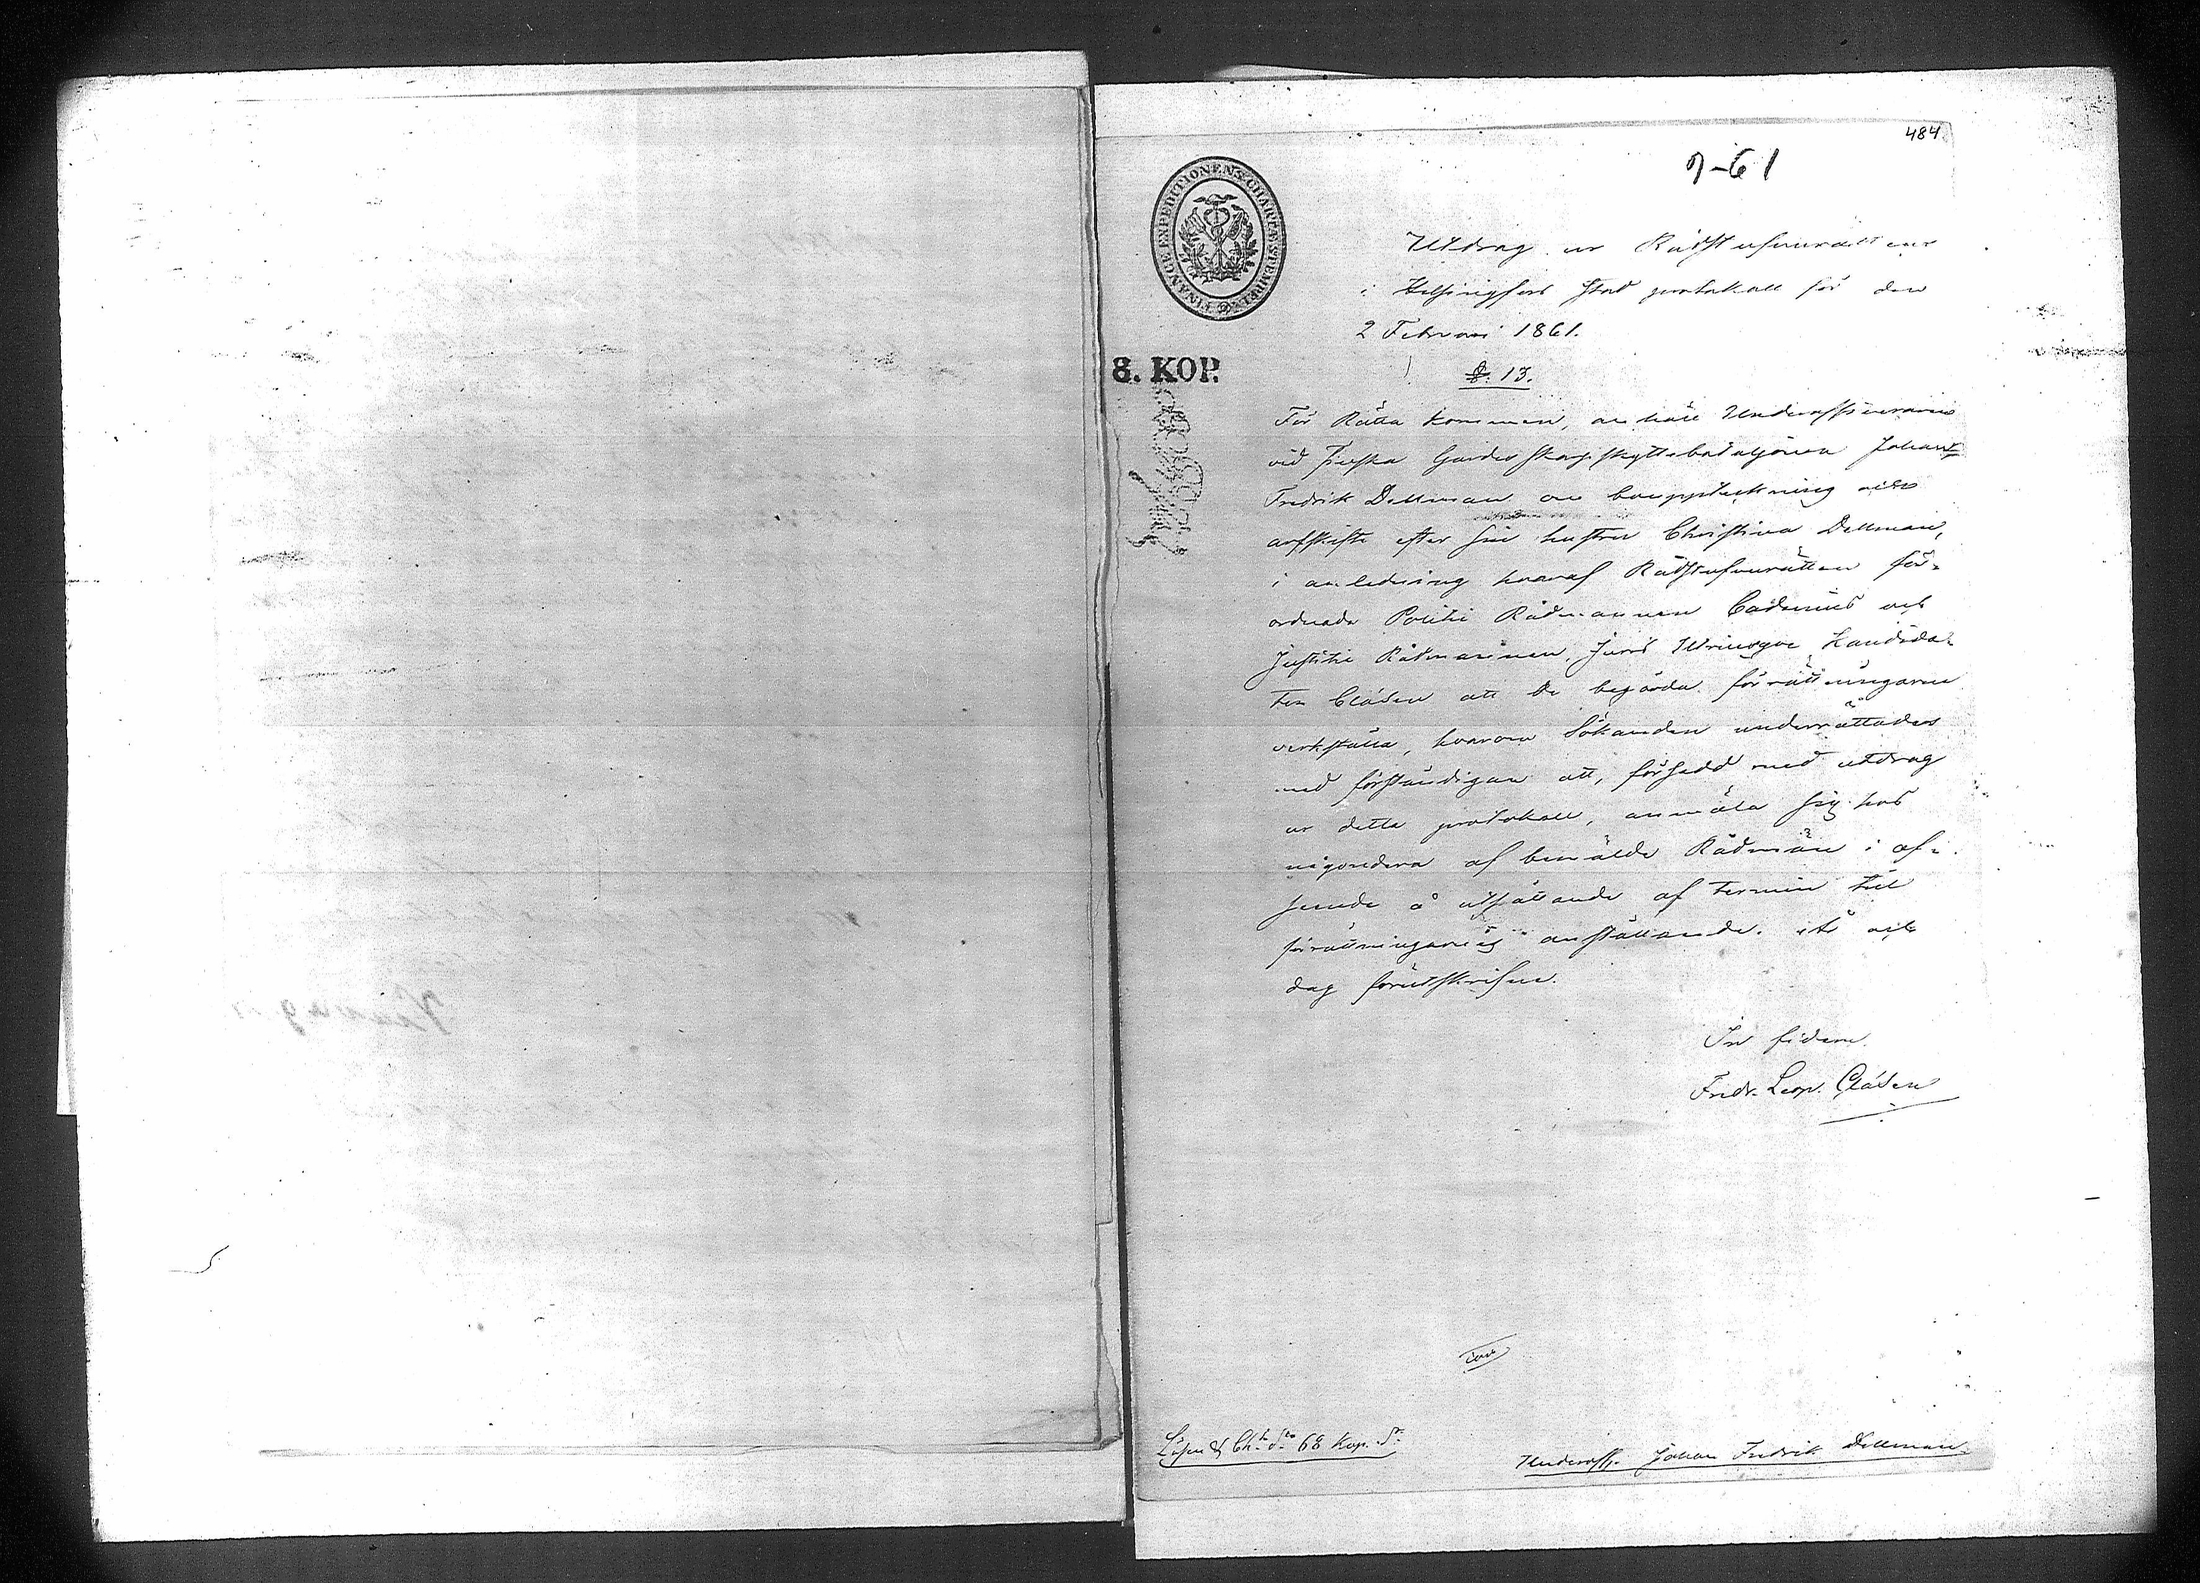 484
9-61
FINANCE EXPEDITIONENS CHARTÆ STEMPEL
Utdrag ur Rådstufvurättens
i Helsingfors stad protokoll för den
2 Februari 1861.
8. KOP.
§. 13.
För Rätta kommen, anhöll Underofficeraren
vid Finska Gardes skarpskyttebataljonen Johan
Fredrik Dellman om bouppteckning och
arfskifte efter sin hustru Christina Dellman,
i anledning hvaraf Rådstufvurätten för-
ordnade Politie Rådmannen Cadenius och
Justitie Rådmannen, Juris Utriusque Kandida-
ten Clásen att de begärda förrättningarne
verkställa, hvarom Sökanden underrättades
med förständigan att, försedd med utdrag
ur detta protokoll, anmäla sig hos
någondera af bemälde Rådmän i af-
seende å utsättande af termin till
förrättningarnes anställande. År och
dag förutskrifne.
In fidem
Fredr. Leop. Clásen
Lösen & Ch. 68 Kop. Sr.
Underoff. Johan Fredrik Dellman.